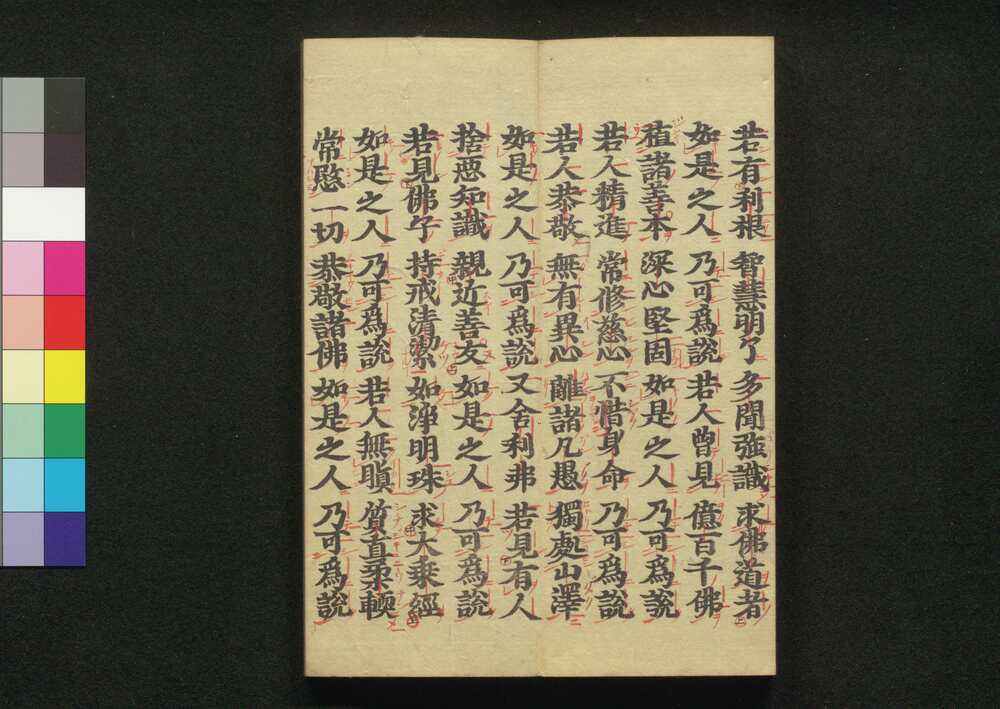 若有利根 智慧明了 多聞強識 求佛道者
如是之人 乃可爲說 若人曾見 億百千佛
殖諸善本 深心堅固 如是之人 乃可爲說
若人精進 常修慈心 不惜身命 乃可爲說
若人恭敬 無有異心 離諸凡愚 獨處山澤
如是之人 乃可爲說 又舍利弗 若見有人
捨惡知識 親近善友 如是之人 乃可爲說
若見佛子 持戒清潔 如淨明珠 求大乘經
如是之人 乃可爲說 若人無瞋 質直柔軟
常愍一切 恭敬諸佛 如是之人 乃可爲說